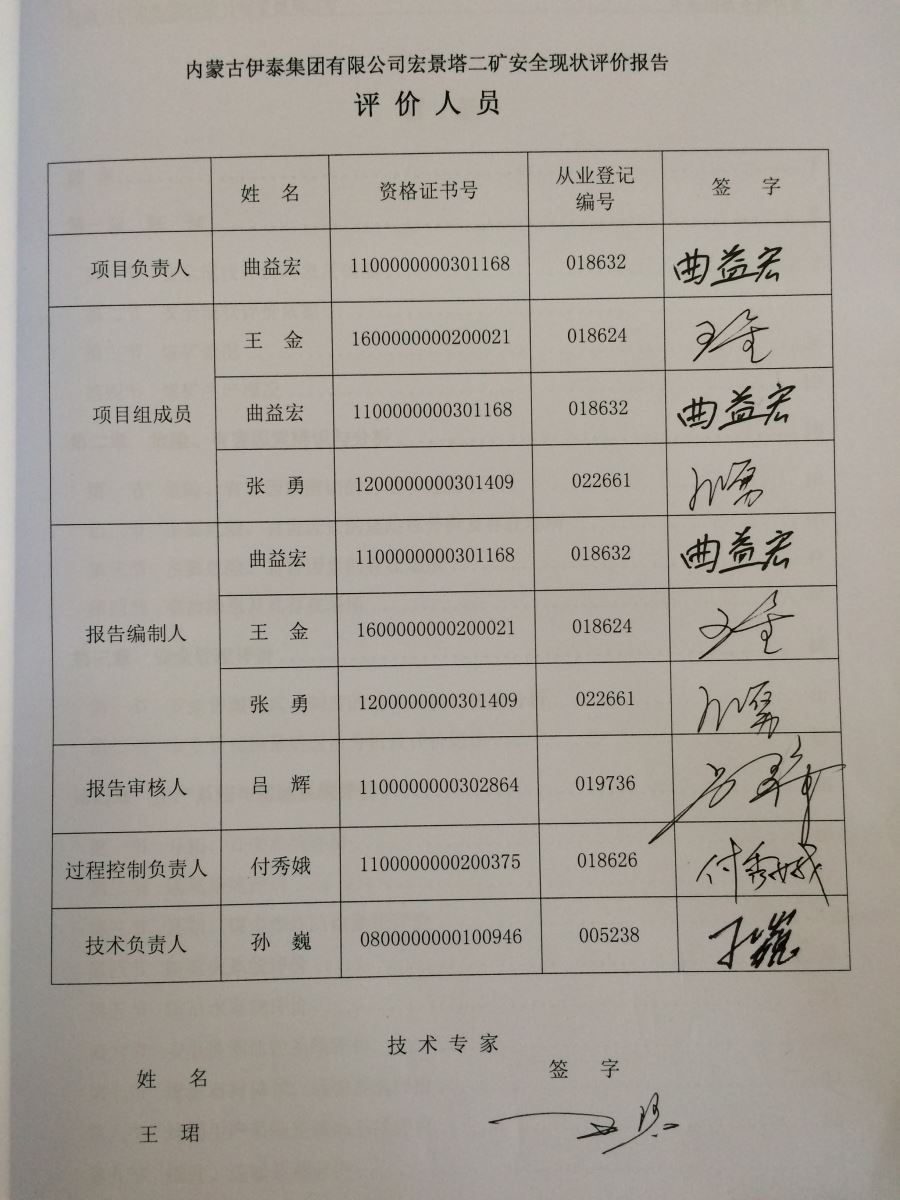 内蒙古伊泰集团有限公司宏景塔二矿安全现状评价报告
评价人员
姓 名 资格证书号 从业登记编号 签 字
项目负责人 曲益宏 1100000000301168 018632 曲益宏
项目组成员 王 金 1600000000200021 018624 王金
曲益宏 1100000000301168 018632 曲益宏
张 勇 1200000000301409 022661 张勇
报告编制人 曲益宏 1100000000301168 018632 曲益宏
王 金 1600000000200021 018624 王金
张 勇 1200000000301409 022661 张勇
报告审核人 吕 辉 1100000000302864 019736 吕辉
过程控制负责人 付秀娥 1100000000200375 018626 付秀娥
技术负责人 孙 巍 0800000000100946 005238 孙巍
技术专家
姓 名 签 字
王 珺 王珺